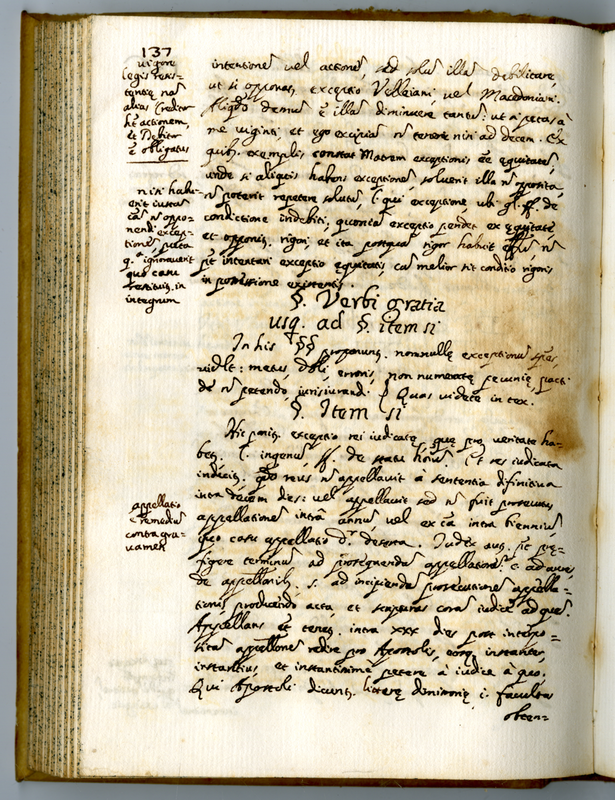 137
vigore
legis resis-
tentiæ na
alias Creditor
ht actionem,
et Debitor
ẽ obligatus
nisi habu-
erit iustam
cãm oppo-
nendi excep-
tionem, puta
q.ª ignoraverit
quo casu
restituit. in
integrum
appellatio
ẽ remediũ
contra gra-
vamen
intentionẽ vel actionẽ, ad solũ illã debilitare,
ut si opponat exceptio Velleiani vel Macedoniani.
Aliqñ demũ ẽ illã diminuere tantũ: ut si petas à
me viginti et ego excipiam ñ teneri nisi ad decem. Ex
quib. exemplis constat Matrem exceptionis eẽ equitatẽ,
unde si aliquis habens exceptionẽ, solverit illa ñ opposita,
ñ poterit repetere solutũ l. qui exceptionẽ, ubi gl. ff. de
condictione indebiti, quoniã exceptio pendet ex equitate
et opponit. rigori et ita postquam rigor habuit effũ ñ
pẽt intentari exceptio equitatis cum melior sit conditio rigoris
in possessione existentis.
§. Verbi gratia
usq. ad §. item si
In his §§ proponunt. nonnullę exceptionũ spẽs,
vidlt: metus, doli, erroris, non numeratę pecunię, pacti
de ñ petendo, jurisiurandi. Quas videte in tex.
§. Item si
Hic ponit. exceptio rei iudicatę, quę pro veritate ha-
bet. l. ingenuũ ff. de statu hoĩum. Et res iudicata
indicit. qño reus ñ appellavit à sententia difinitiva
intra decem dies: vel appellavit sed ñ fuit prosecutus
appellationẽ intra annũ vel ex cã intra biennium
quo casu appellatio d. deserta. Iudex aut. pẽt prę-
figere terminũ ad prosequendã appellationẽ. c. ad aures
de appellonib. s. ad incipiendã prosecutionẽ appella-
tionis producendo acta et scripturas coram iudice ad quẽ.
Appellans ẽt tenet. intra xxx dies post interpo-
sitam appellonẽ redire pro Apostolis, eosq. instanter,
instantius, et instantissime petere à iudice à quo.
Qui Apostoli dicunt. litterę dimissorię i. facultas
obten-